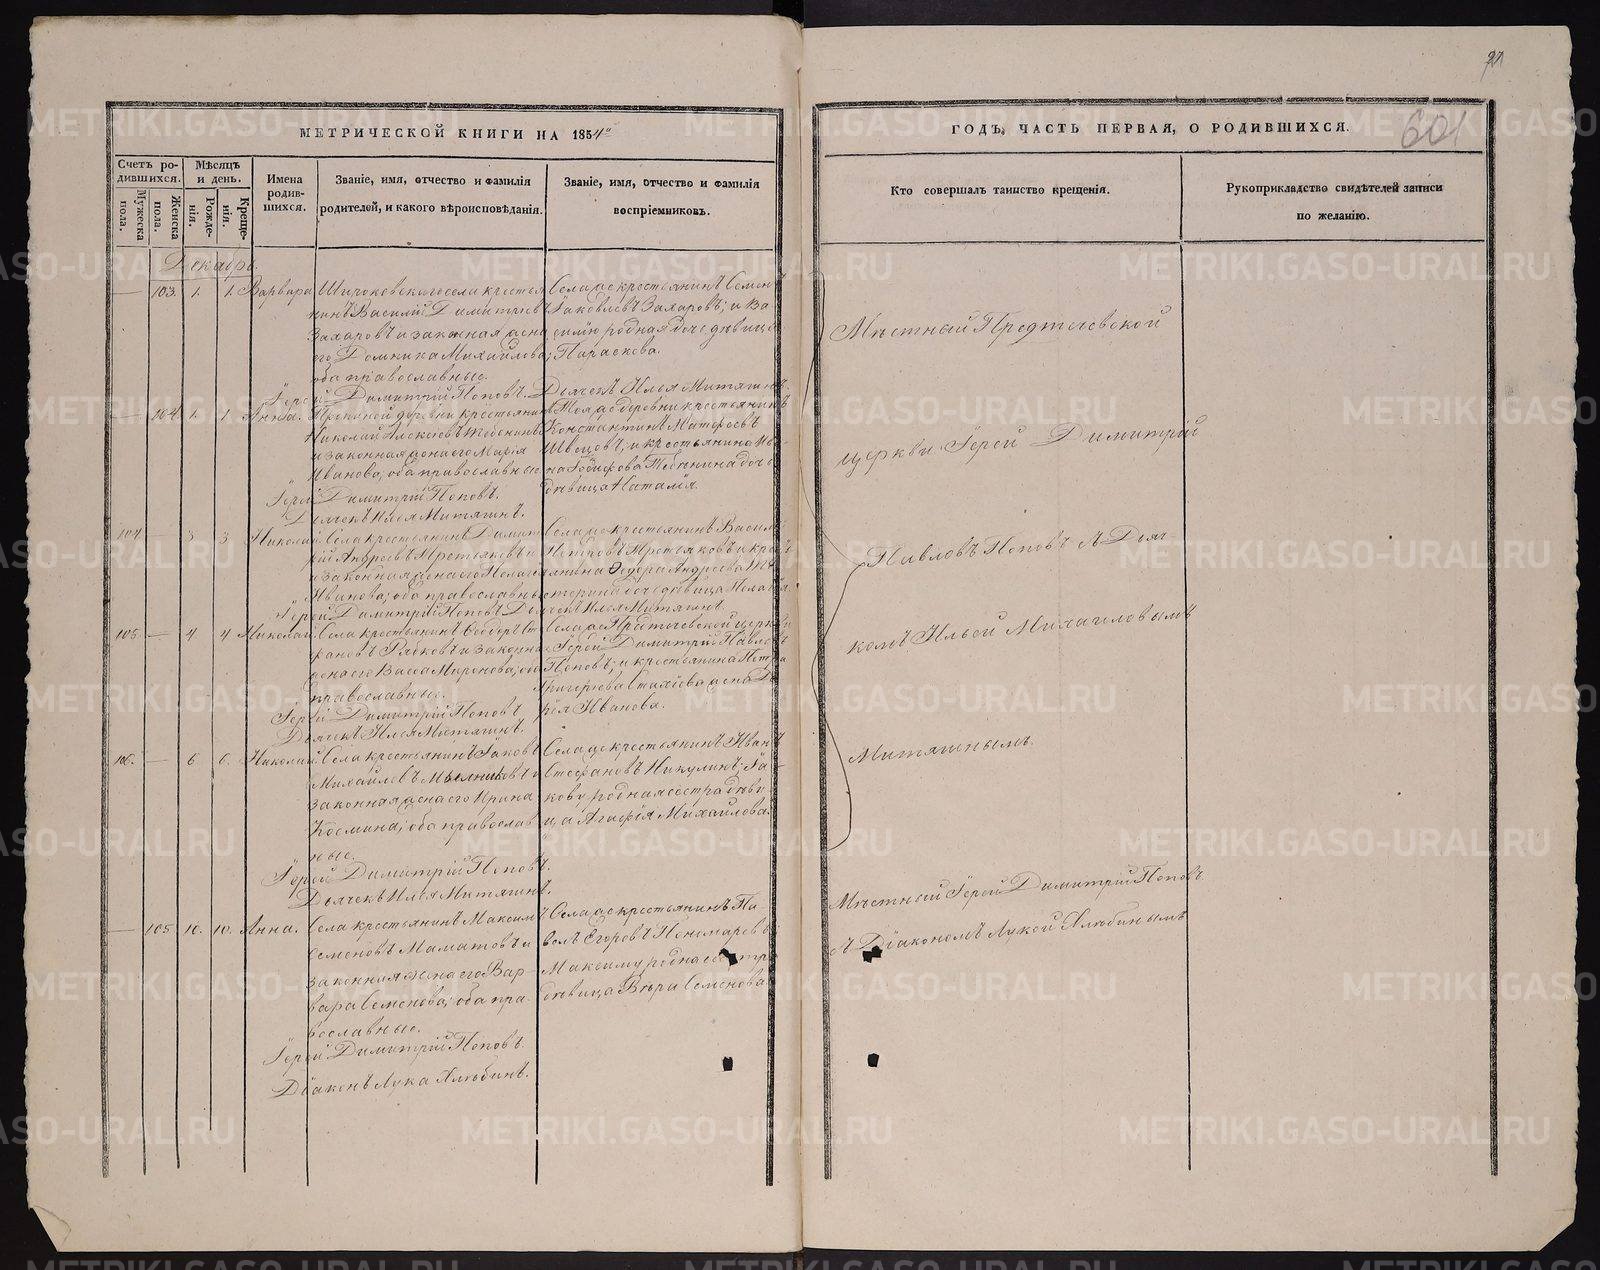 МЕТРИЧЕСКОЙ КНИГИ НА 1854
Счетъ ро-
дившихся.
Мѣсяцъ
и день.
Мужеска
пола.
Женска
пола.
Рожде-
нія.
Креще-
нія.
Имена
родив-
шихся.
Званіе, имя, отчество и фамилія
родителей, и какого вѣроисповѣданія.
Званіе, имя, отчество и фамилія
воспріемниковъ.
Декабрь.
— 103. 1. 1. Варвара
Широковскаго села крестья
нинъ Василій Димитріевъ
Захаровъ и законная жена
его Домника Михайлова;
оба православные.
Села же крестьянинъ Семенъ
Іаковлевъ Захаровъ; и Ва
силію родная дочь дѣвица
Параскева.
Іерей Димитрій Поповъ. Дьячекъ Илья Митягинъ.
— 104. 1. 1. Анна.
деревни крестьянинъ
Николай Алексѣевъ
и законная жена его Марія
Иванова; оба православные
Той же деревни крестьянинъ
Константинъ Матѳеевъ
Швецовъ; и крестьянина
дочь
дѣвица Наталія.
Іерей Димитрій Поповъ.
Дьячекъ Илья Митягинъ.
104 — 3 3 Николай
Села крестьянинъ Димит
рій Андреевъ Третьяковъ и
законная жена его Пелагея
Иванова; оба православные
Села же крестьянинъ Васил
Петровъ Третьяковъ и крес
янина Ѳедора Андреева
дочь дѣвица Пелагея
Іерей Димитрій Поповъ Дьячекъ Илья Митягинъ
105 — 4. 4 Николай
Села крестьянинъ Ѳеодоръ Ст
фановъ Рябковъ и законна
жена его Васса Миронова; оба
православные.
Села же Предтечевской церкви
Іерей Димитрій Павловъ
Поповъ; и крестьянина Петра
Григорьева жена
Иванова.
Іерей Димитрій Поповъ
Дьячекъ Илья Митягинъ.
106. — 6 6. Николай.
Села крестьянинъ Іаковъ
Михайловъ Мельниковъ и
законная жена его Ирина
Космина; оба православ
ные.
Села же крестьянинъ Иванъ
Стефановъ Никулинъ; Іа-
кову родная сестра дѣви
ца Агафія Михайлова.
Іерей Димитрій Поповъ.
Дьячекъ Илья Митягинъ.
— 105 10. 10. Анна.
Села крестьянинъ Максимъ
Семеновъ Маматовъ и
законная жена его Вар-
вара Семенова; оба пра-
вославные.
Села же крестьянинъ Па
велъ Егоровъ Пономаревъ
Максиму родная сестра
дѣвица Вѣра Семенова
Іерей Димитрій Поповъ.
Діаконъ Лука Хлыбинъ.
ГОДЪ, ЧАСТЬ ПЕРВАЯ, О РОДИВШИХСЯ.
601
Кто совершалъ таинство крещенія.
Рукоприкладство свидѣтелей записи
по желанію.
Мѣстный Предтечевской
церкви Іерей Димитрій
Павловъ Поповъ съ Дьяч
комъ Ильей Михайловымъ
Митягинымъ.
Мѣстный Іерей Димитрій Поповъ
съ Діакономъ Лукой Хлыбинымъ
METRIKI.GASO-URAL.RU